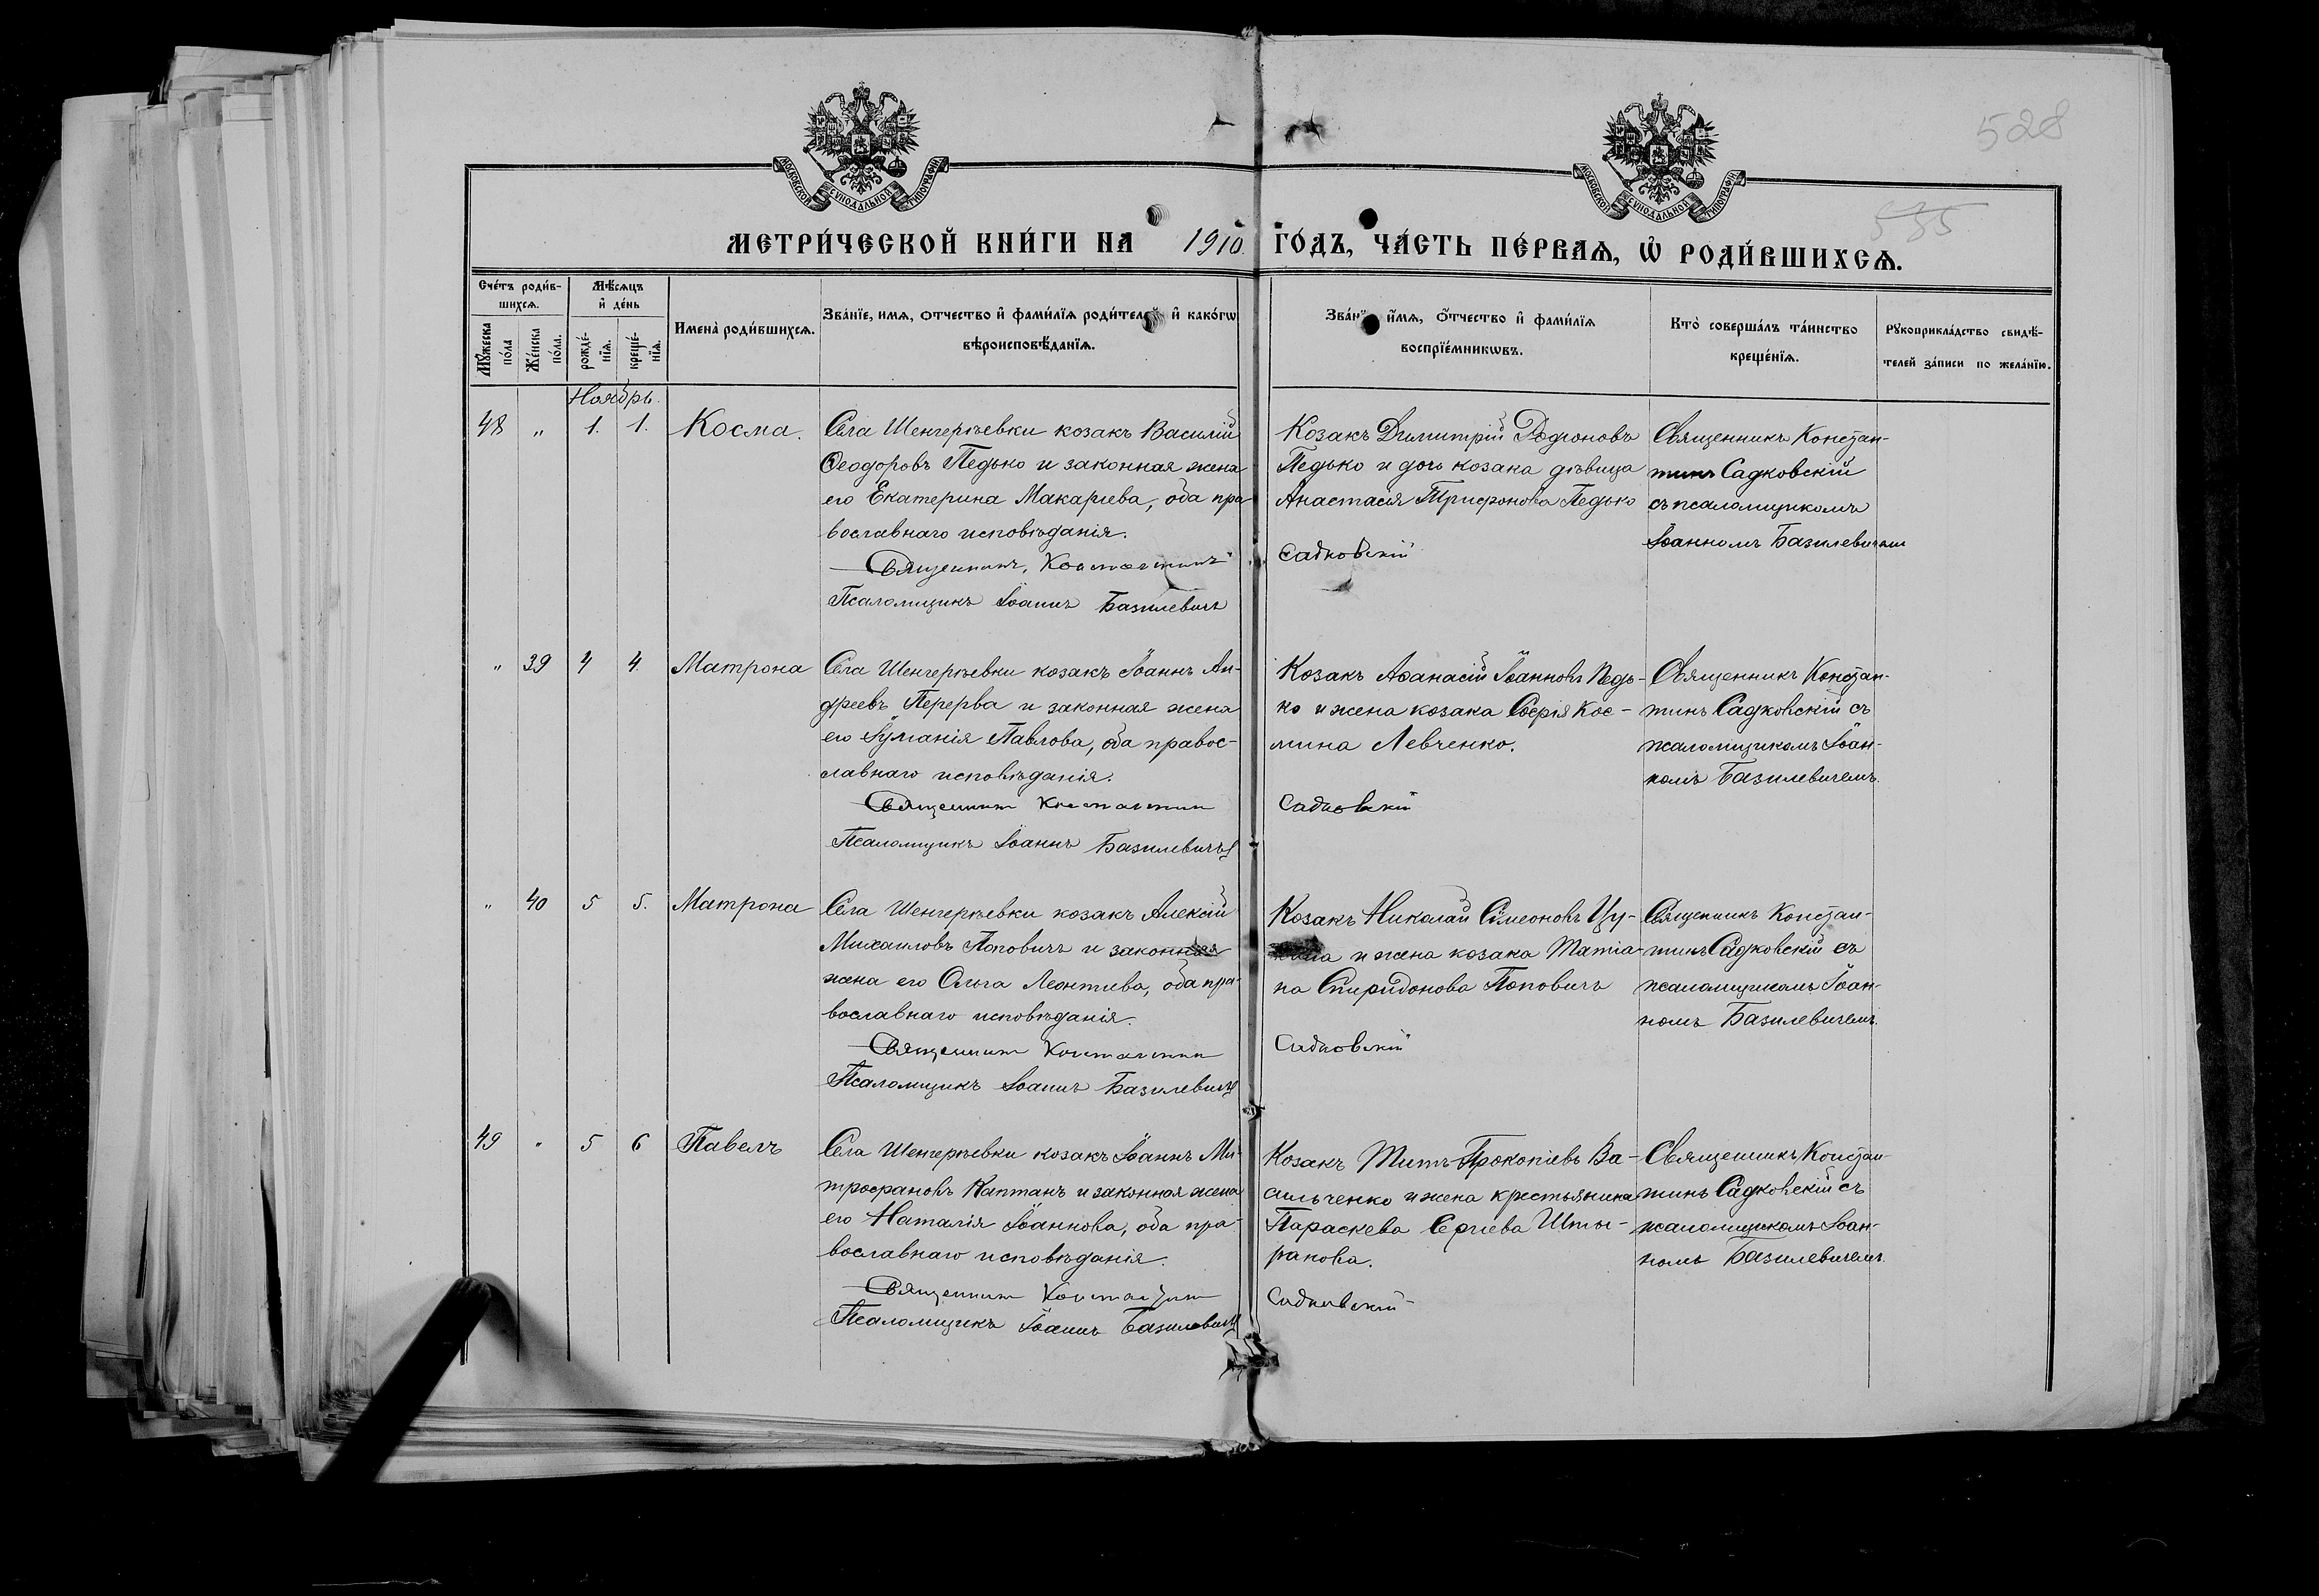 528
535
МОСКОВСКОЙ СѴНОДАЛЬНОЙ ТИПОГРАФІИ
МОСКОВСКОЙ СѴНОДАЛЬНОЙ ТИПОГРАФІИ
МЕТРИ́ЧЕСКОЙ КНИ́ГИ НА 1910. ГО́ДЪ, ЧА́СТЬ ПЕ́РВАѦ, Ѡ҆ РОДИ́ВШИХСѦ.
Сче́тъ роди́в-
шихсѧ.
Мꙋ́жеска по́ла
Же́нска по́ла.
Мѣ́сѧцъ
и҆ де́нь
рожде́-
нїѧ.
креще́-
нїѧ.
Имена̀ роди́вшихсѧ.
Зва́нїе, имѧ, отчество и҆ фами́лїѧ роди́телей и҆ како́гѡ
вѣроисповѣ́данїѧ.
Зва́нїе, и҆мѧ, о҆́тчество и҆ фами́лїѧ
воспрїе́мникѡвъ.
Кто̀ соверша́лъ та́инство
креще́нїѧ.
Рꙋкоприкла́дство свидѣ́-
телей за́писи по жела́нїю.
Ноябрь.
48 " 1. 1. Косма.
Села Шенгерѣевки козакъ Василій
Ѳеодоровъ Педько и законная жена
его Екатерина Макаріева, оба пра-
вославнаго исповѣданія.
Священникъ Константинъ
Псаломщикъ Іоаннъ Базилевичъ
Козакъ Димитрій Родіоновъ
Педько и дочь козака дѣвица
Анастасія Трифонова Педько
Садковскій
Священникъ Констан-
тинъ Садковскій
съ псаломщикомъ
Іоанномъ Базилевичемъ
" 39 4 4. Матрона
Села Шенгерѣевки козакъ Іоаннъ Ан-
дреевъ Перерва и законная жена
его Іуліанія Павлова, оба правос-
лавнаго исповѣданія.
Священникъ Константинъ
Псаломщикъ Іоаннъ Базилевичъ
Козакъ Аѳанасій Іоанновъ Педь-
ко и жена козака Софія Кос-
мина Левченко.
Садковскій
Священникъ Констан-
тинъ Садковскій съ
псаломщикомъ Іоан-
номъ Базилевичемъ.
" 40 5 5. Матрона
Села Шенгерѣевки козакъ Алексій
Михаиловъ Поповичъ и законная
жена его Ольга Леонтіева, оба пра-
вославнаго исповѣданія.
Священникъ Константинъ
Псаломщикъ Іоаннъ Базилевичъ
Козакъ Николай Симеоновъ Цу-
и жена козака Татіа-
на Спиридонова Поповичъ
Садковскій
Священникъ Констан-
тинъ Садковскій съ
псаломщикомъ Іоан-
номъ Базилевичемъ.
49 " 5 6 Павелъ
Села Шенгерѣевки козакъ Іоаннъ Ми-
трофановъ Каптанъ и законная жена
его Наталія Іоаннова, оба пра-
вославнаго исповѣданія.
Священникъ Константинъ
Псаломщикъ Іоаннъ Базилевичъ
Козакъ Титъ Прокопіевъ Ва-
сильченко и жена крестьянина
Параскева Сергіева Шты-
ракова.
Садковскій
Священникъ Констан-
тинъ Садковскій съ
псаломщикомъ Іоан-
номъ Базилевичемъ.